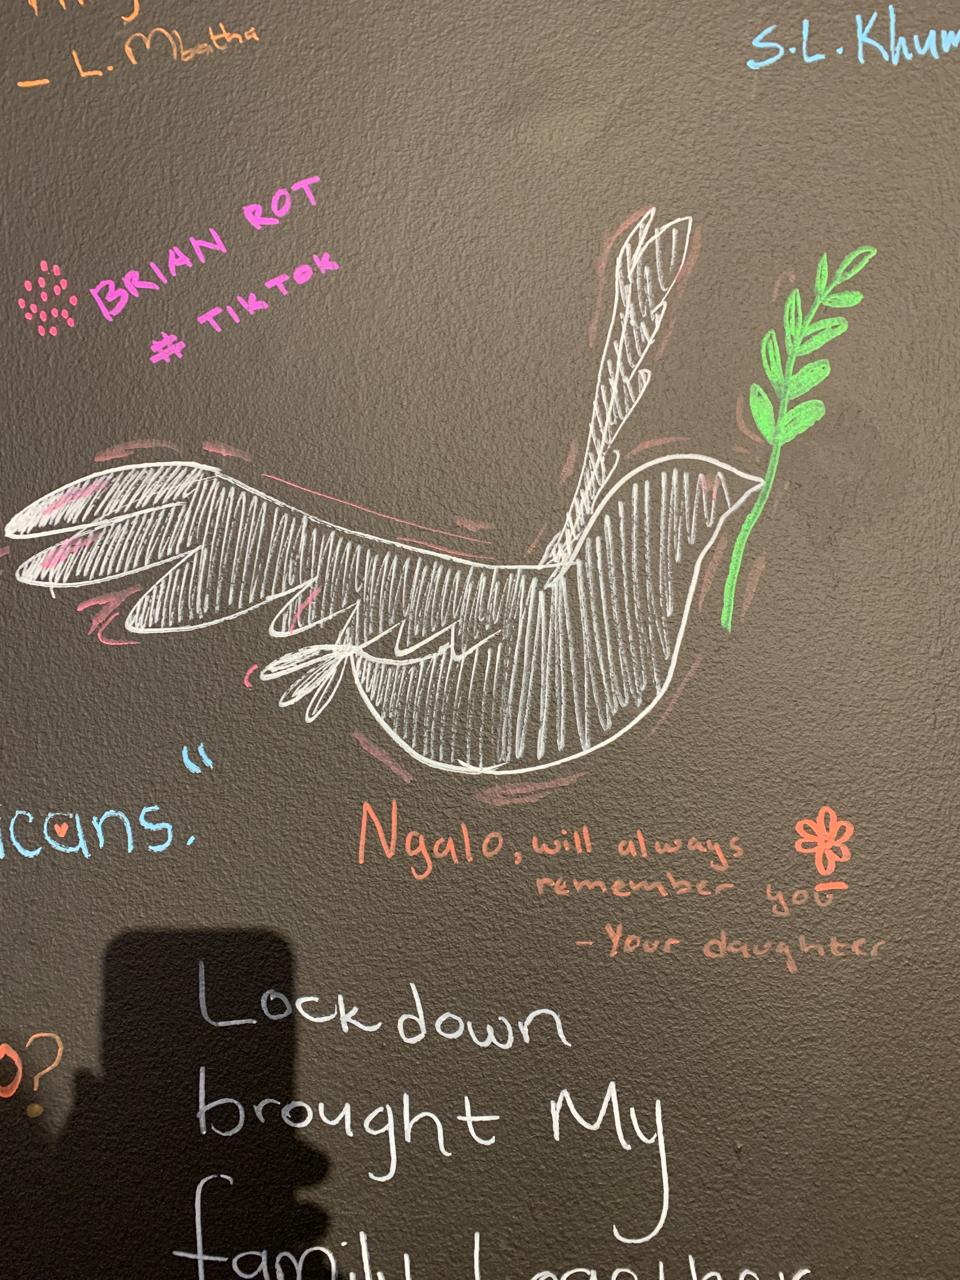 - L. Mbatha
S.L. Khum
BRIAN ROT
# TIKTOK
icans."
Ngalo, will always
remember you
- Your daughter
O?
Lockdown
brought My
family